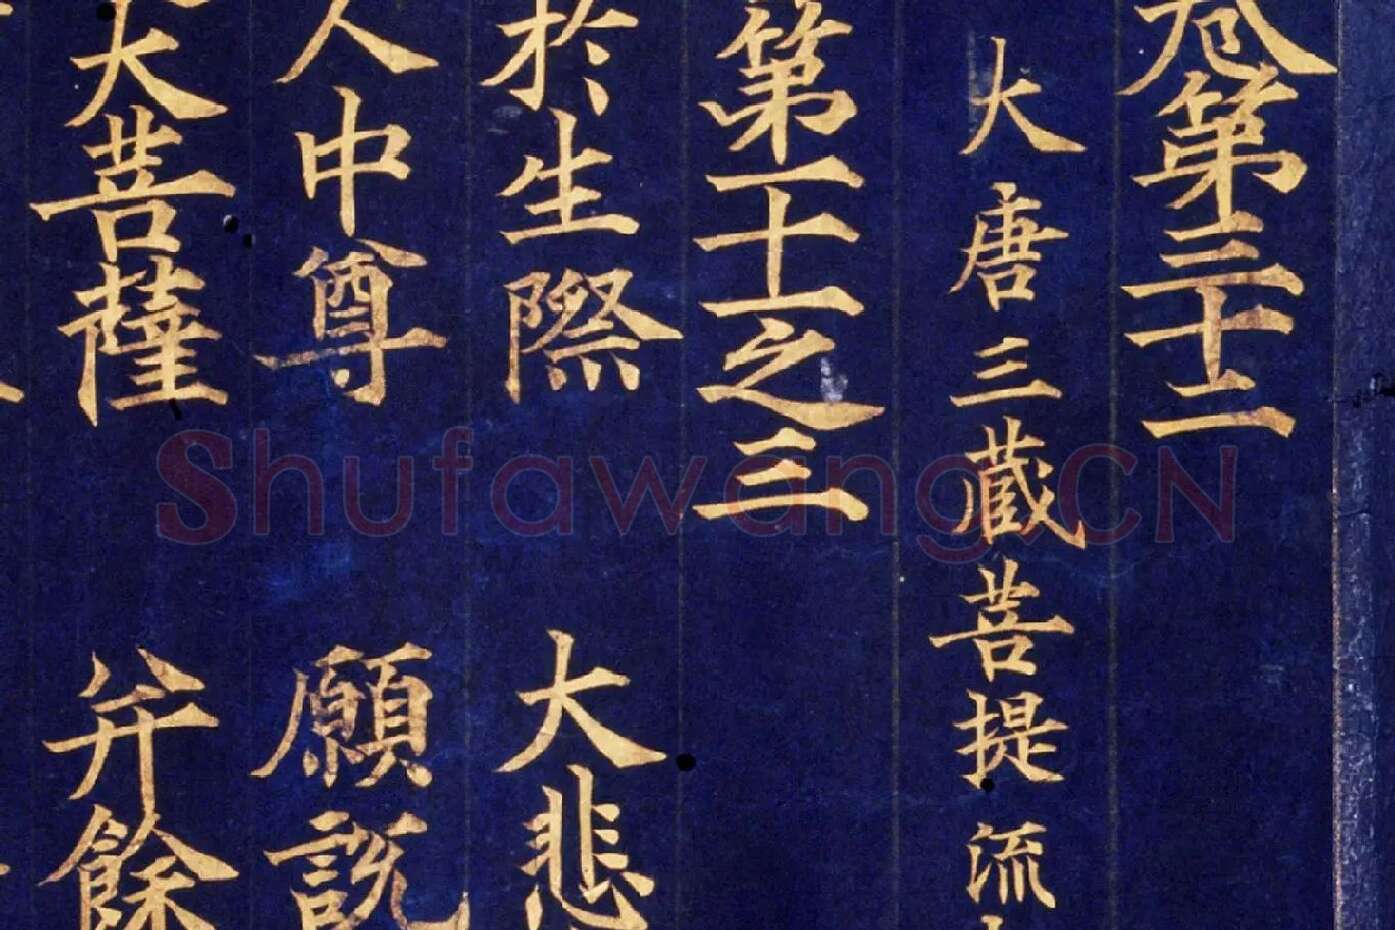 卷第三十二
大唐三蔵菩提流
第十一之三
於生際 大悲
人中尊 願説
大菩薩 并餘
Shufawang.CN